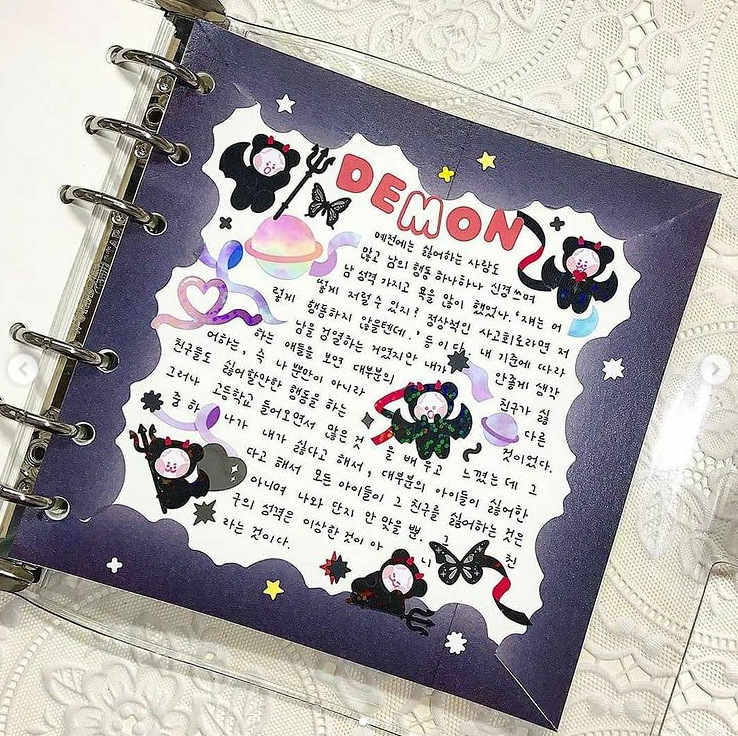 DEMON
예전에는 싫어하는 사람도
많고 남의 행동 하나하나 신경 쓰며
남 성격 가지고 욕을 많이 했었다. '쟤는 어
떻게 저럴 수 있지? 정상적인 사고회로라면 저
렇게 행동하지 않을텐데.' 등이다. 내 기준에 따라
남을 검열하는 거였지만 내가 안좋게 생각
하는 애들을 보면 대부분의 친구가 싫
어하는, 즉 나 뿐만이 아니라 다른
친구들도 싫어할만한 행동을 하는 것이었다.
그러나 고등학교 들어오면서 많은 것을 배우고 느꼈는데 그
중 하나가 내가 싫다고 해서, 대부분의 아이들이 싫어한
다고 해서 모든 아이들이 그 친구를 싫어하는 것은
아니며 나와 단지 안 맞을 뿐, 그 친
구의 성격은 이상한 것이 아니
라는 것이다.